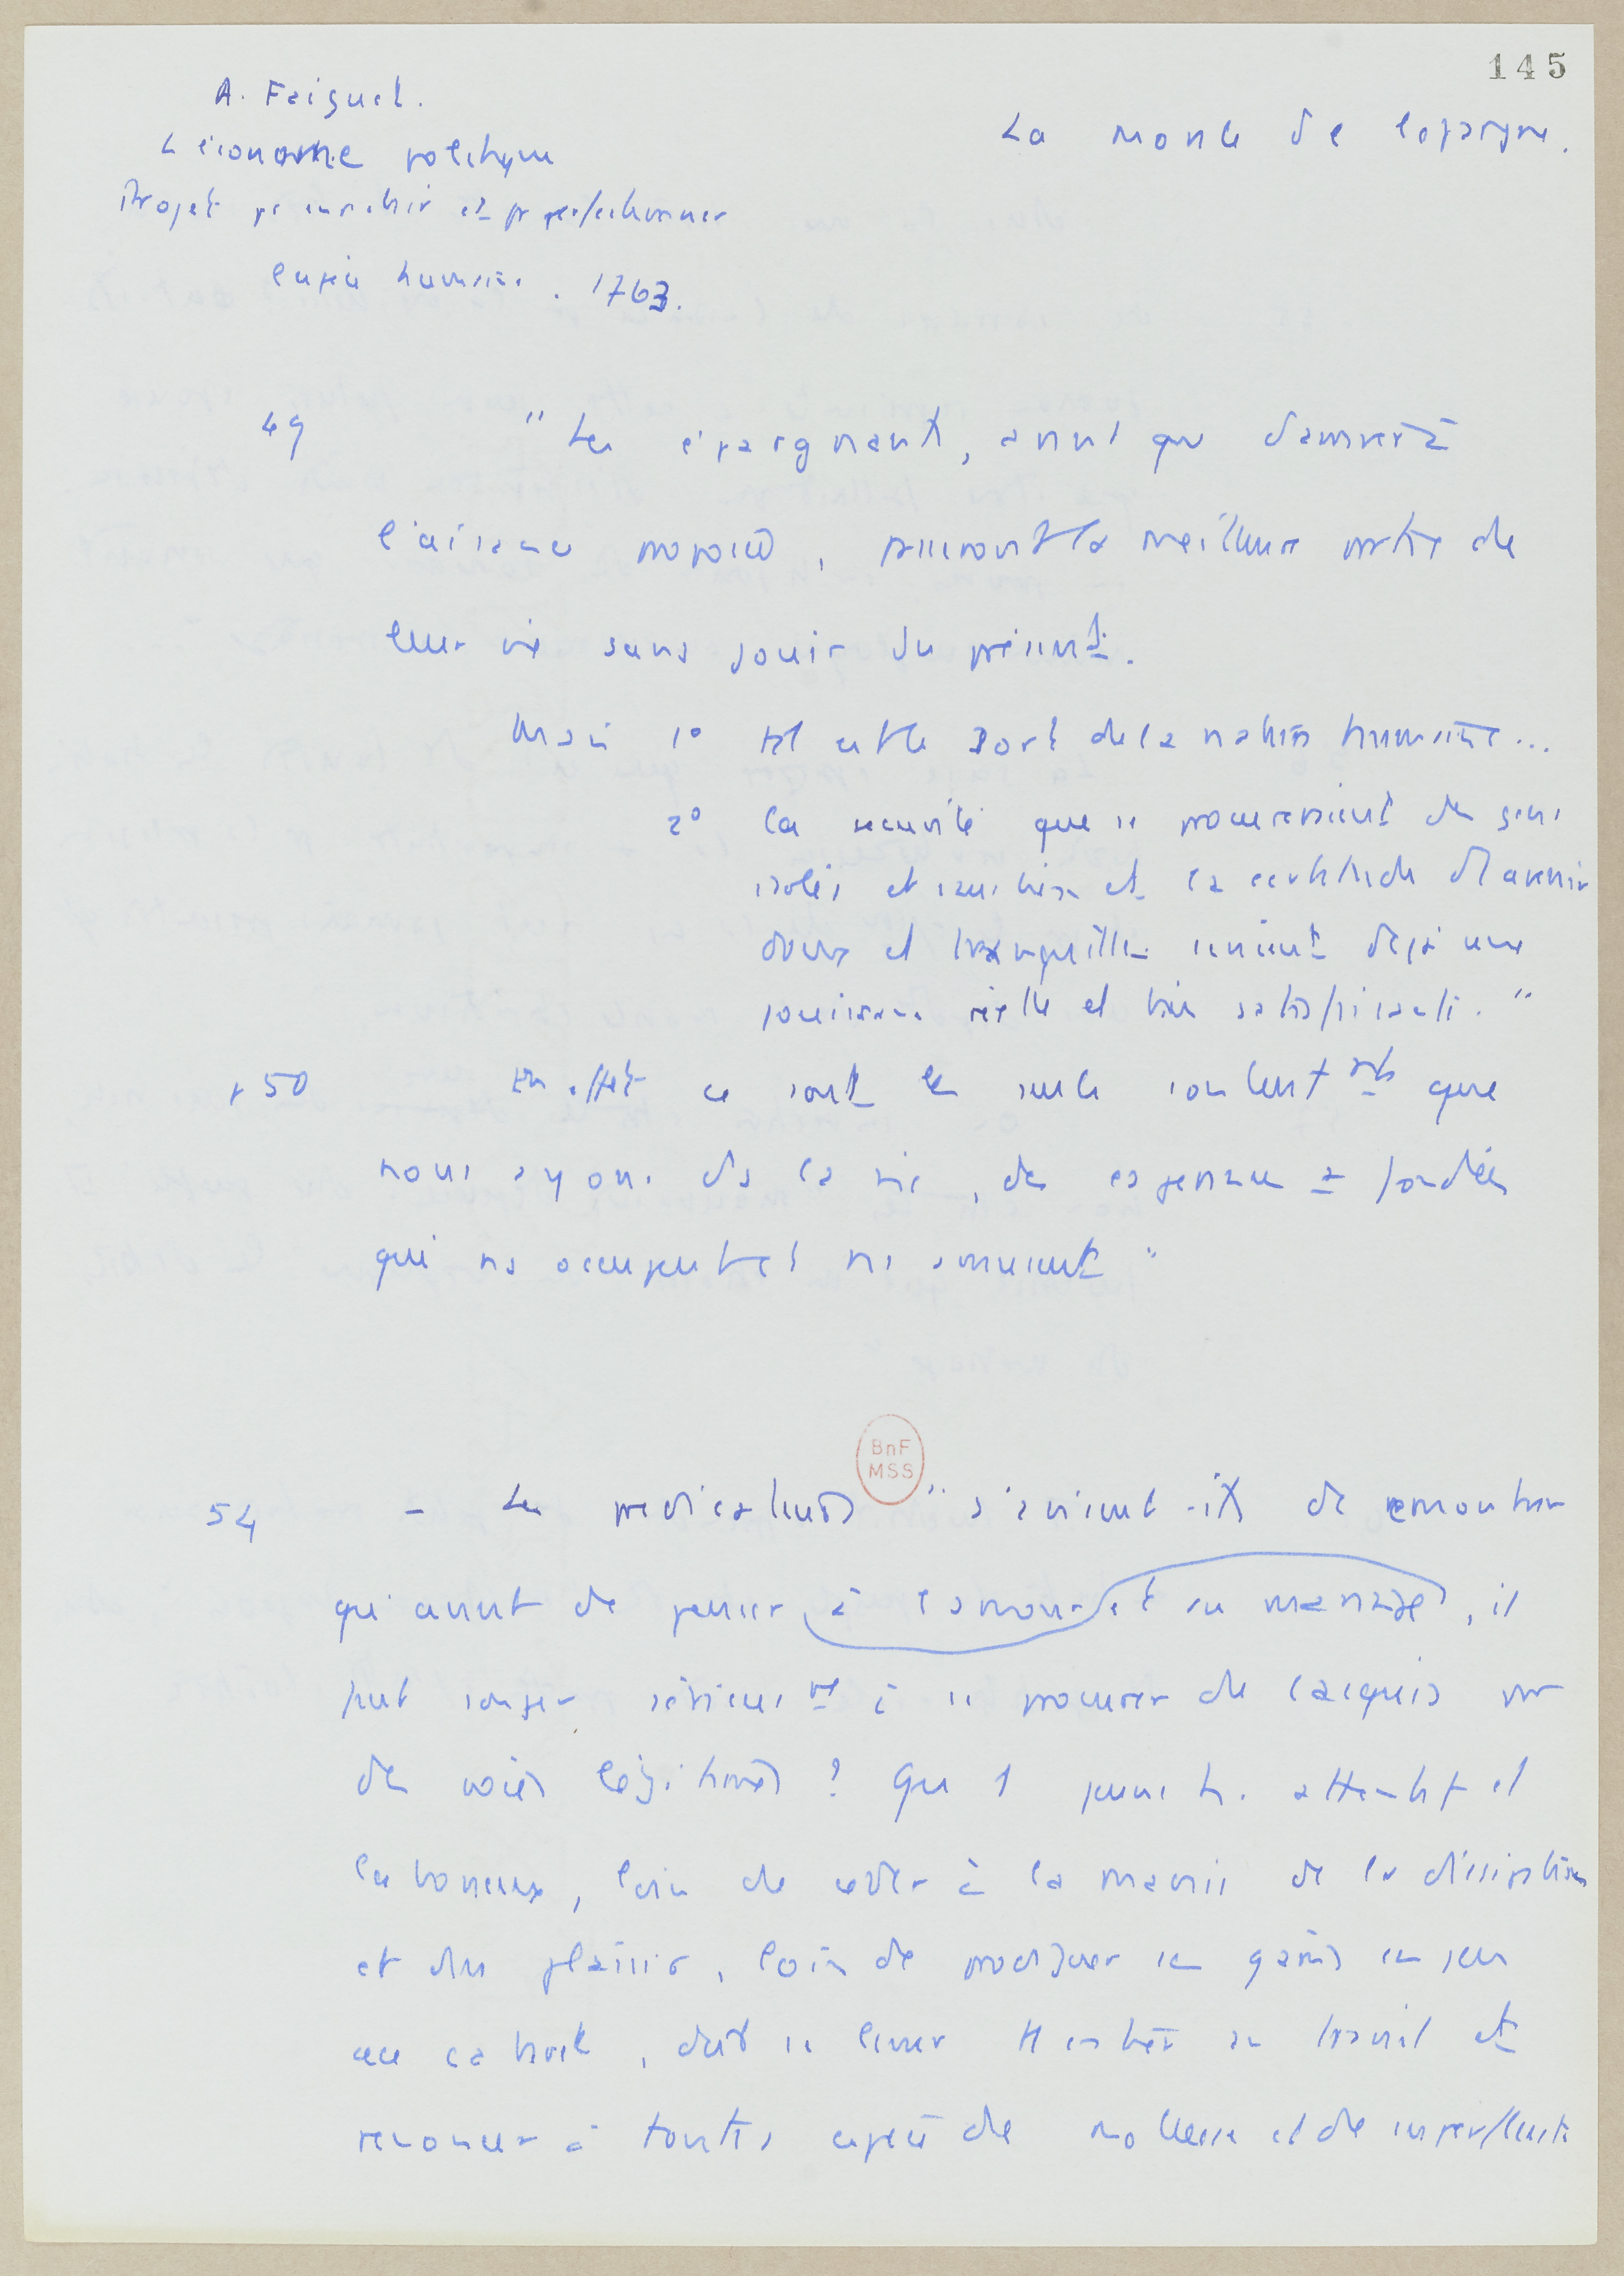 145
A. Faiguet.
L'économie politique
Projet pr enrichir et pr perfectionner
l'espèce humaine. 1763.
La morale de l'épargne.
49 "Les épargnants, avant que d'arriver à
l'aisance proposée, passeront la meilleure partie de
leur vie sans jouir du présent.
Mais 1° tel est le sort de la nature humaine...
2° la sécurité que se procureraient des gens
isolés et la certitude d'avenir
doux et tranquille seraient déjà une
jouissance réelle et bien satisfaisante."
50 En effet ce sont les seuls contentmts que
nous ayons ds la vie, des espérances fondées
qui ns occupent et ns animent"
BnF
MSS
54 - Les prédicateurs "s'avisent-ils de remontrer
qu'avant de penser à l'amour et au mariage, il
faut songer sérieusemt à se procurer de l'acquis par
des voies légitimes? Qu'1 jeune h. attentif et
laborieux, loin de céder à la manie de la dissipation
et du plaisir, loin de prodiguer ses gains en jeu
au cabaret, doit se livrer tt entier au travail et
renoncer à toutes espèce de mollesse et de superfluité